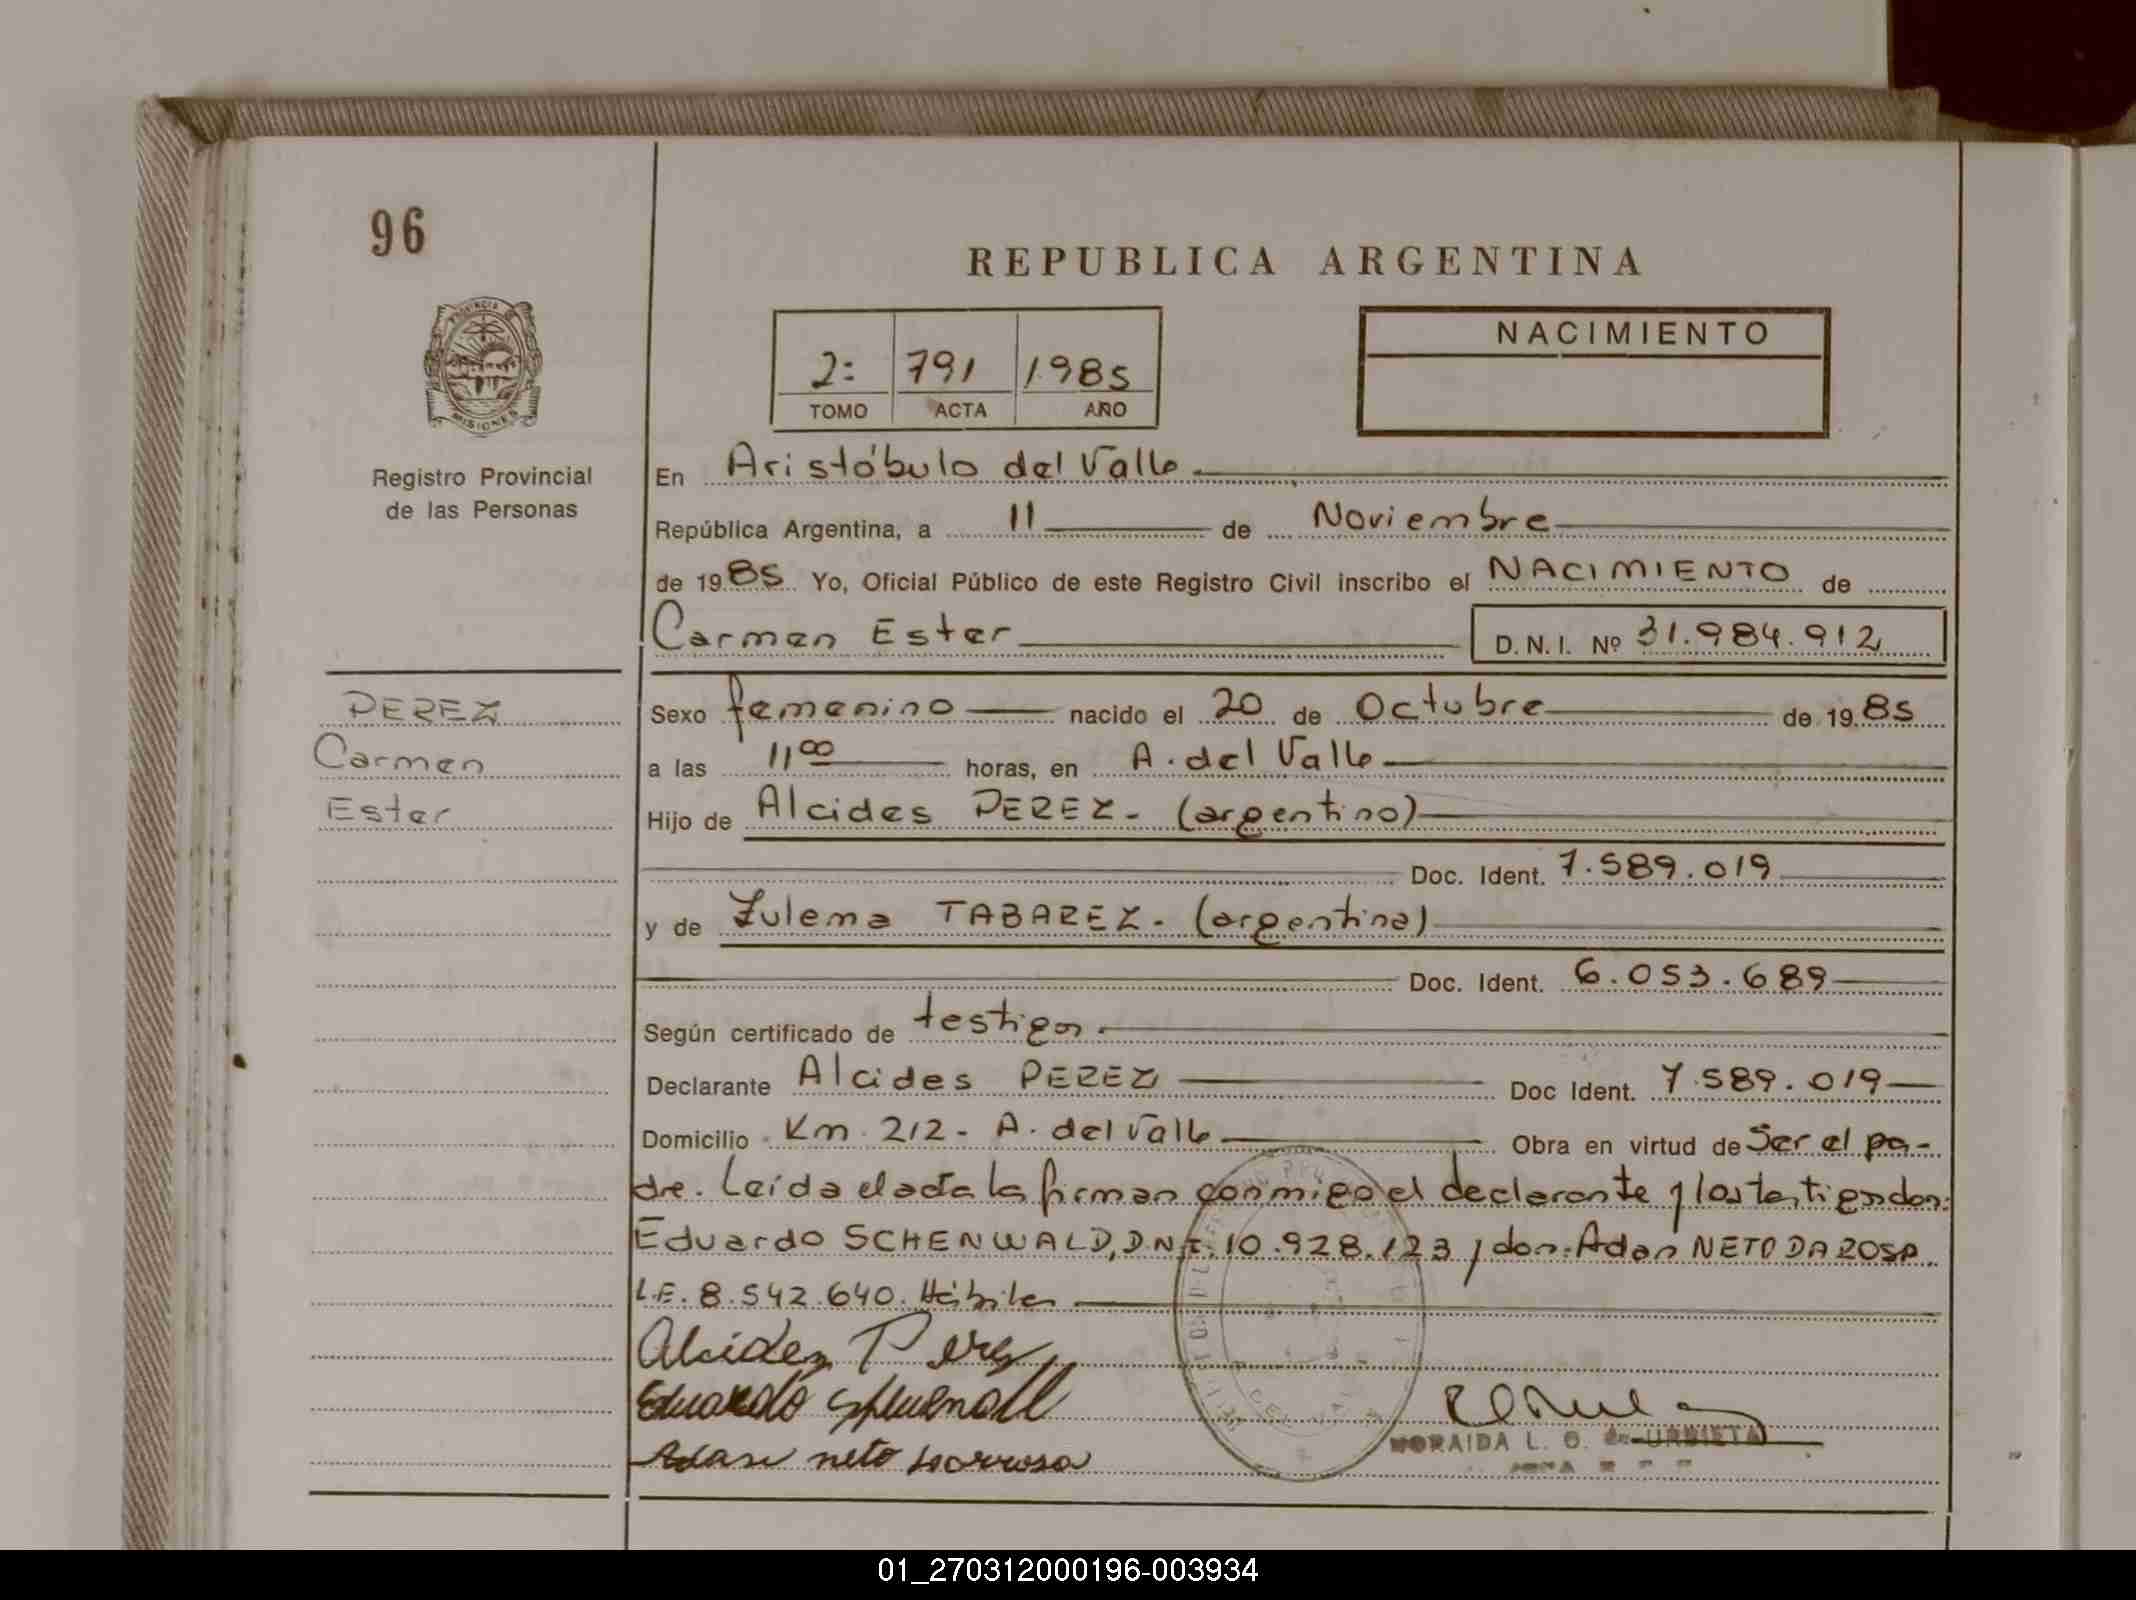 96
REPUBLICA ARGENTINA
PROVINCIA
MISIONES
Registro Provincial
de las Personas
2: 791 1985
TOMO ACTA AÑO
NACIMIENTO
En Aristóbulo del Valle
República Argentina, a 11 de Noviembre
de 1985 Yo, Oficial Público de este Registro Civil inscribo el NACIMIENTO de
Carmen Ester D.N.I. Nº 31.984.912
PEREZ
Carmen
Ester
Sexo femenino nacido el 20 de Octubre de 1985
a las 11 00 horas, en A. del Valle
Hijo de Alcides PEREZ - (argentino)
Doc. Ident. 7.589.019
y de Zulema TABAREZ - (argentina)
Doc. Ident. 6.053.689
Según certificado de testigos.
Declarante Alcides PEREZ Doc Ident. 7.589.019
Domicilio Km 212 - A. del Valle Obra en virtud de Ser el pa-
dre. Leída el acta la firman conmigo el declarante y los testigos don:
Eduardo SCHENWALD, D.N.I. 10.928.123 y don: Adan NETO DA ROSA
L.E. 8.542.640. Hábiles
Alcides Perez
Eduardo
Adan neto
NORAIDA L. G. de URBIETA
01_270312000196-003934